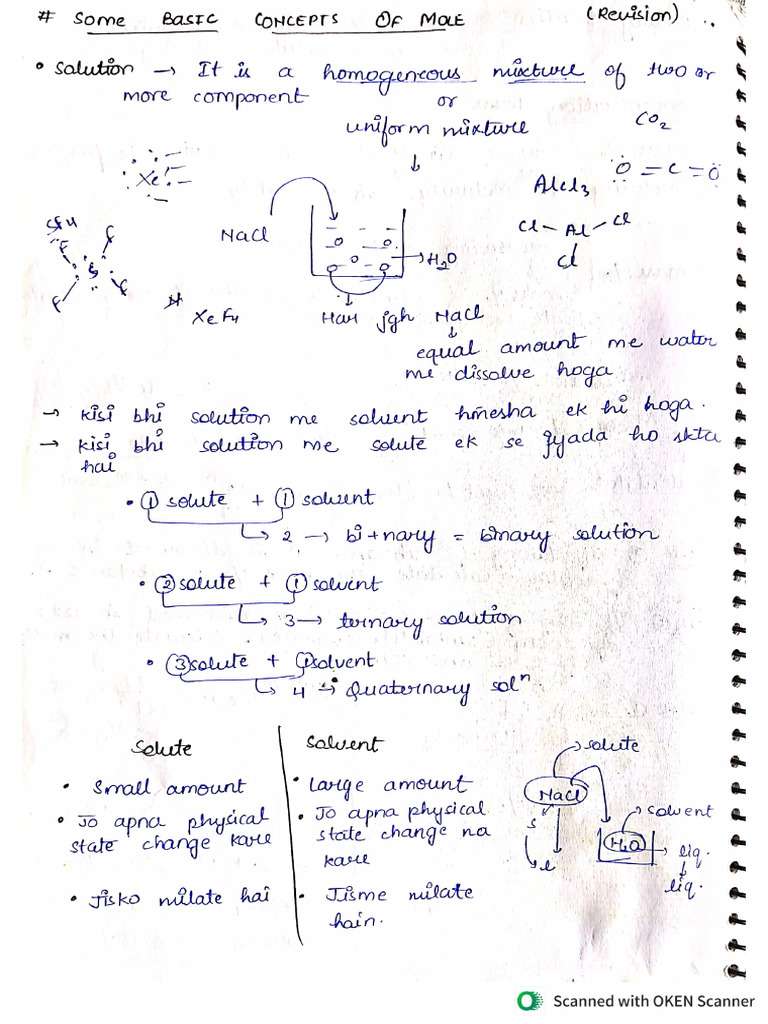 # Some BASIC CONCEPTS OF MOLE (Revision)
• Solution → It is a homogeneous mixture of two or
more component or
uniform mixture
CO2
↓
Xe
AlCl3
O = C = O
SF4
F F
S
F F
NaCl
Cl - Al - Cl
Cl
→ H2O
XeF4
Har jgh NaCl
↓
equal amount me water
me dissolve hoga
→ kisi bhi solution me solvent hmesha ek hi hoga.
→ kisi bhi solution me solute ek se jyada ho skta
hai
• ① solute + ① solvent
↳ 2 → bi+nary = binary solution
• ② solute + ① solvent
↳ 3 → ternary solution
• ③ solute + ① solvent
↳ 4 → Quaternary solⁿ
Solute
• Small amount
• Jo apna physical
state change kare
• Jisko milate hai
Solvent
• Large amount
• Jo apna physical
state change na
kare
• Jisme milate
hain.
→ solute
NaCl
→ solvent
S
H2O
→ liq.
↓
l
liq.
Scanned with OKEN Scanner